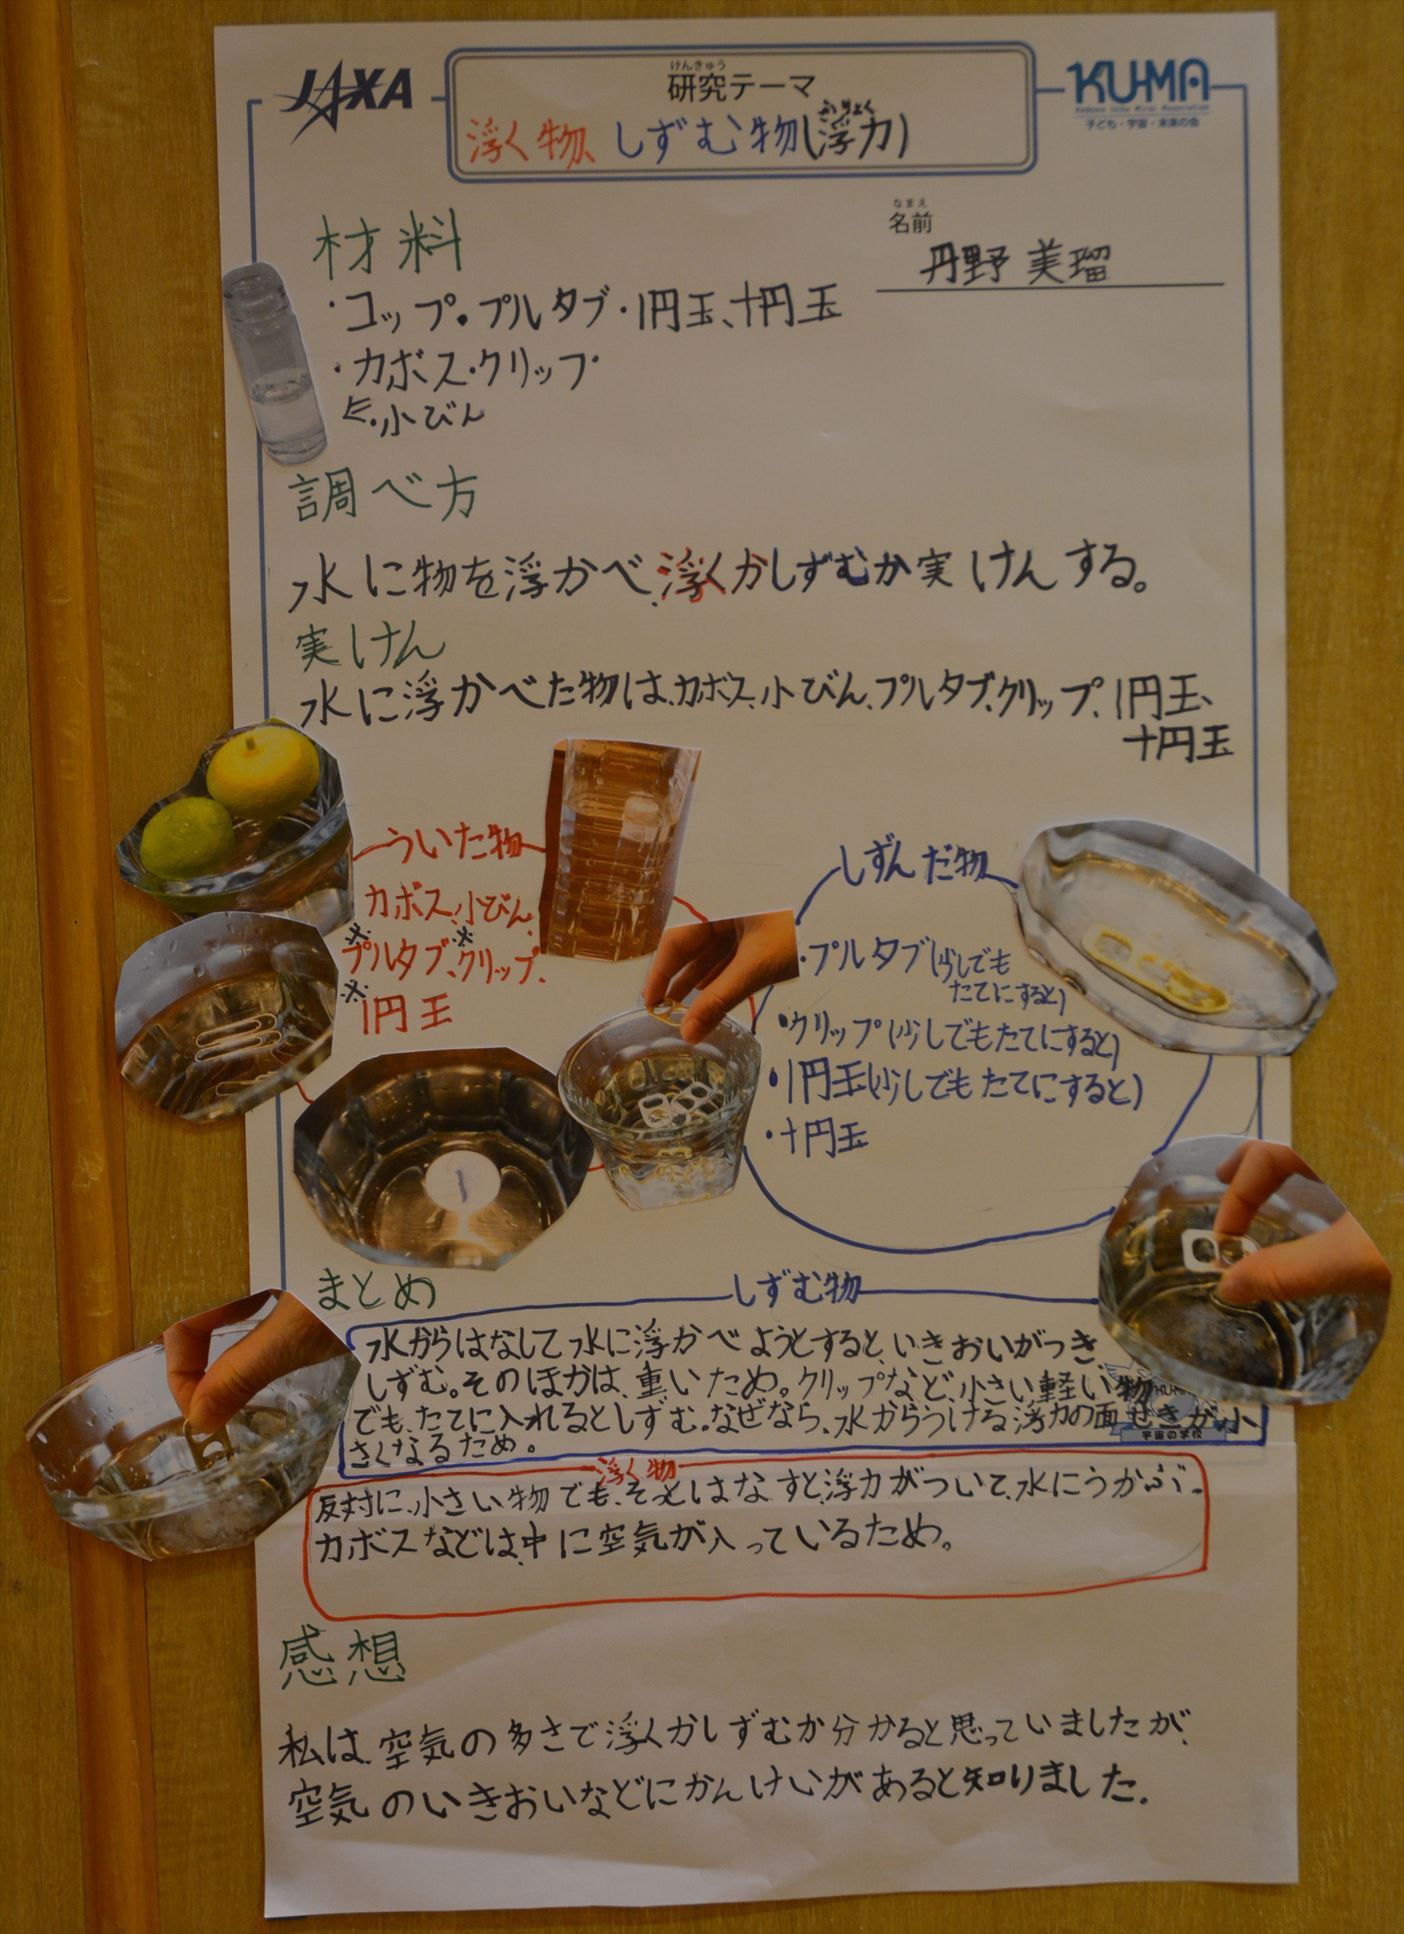 JAXA
けんきゅう
研究テーマ
ふりょく
浮く物、しずむ物(浮力)
KU-MA
Kodomo Uchu Mirai Association
子ども・宇宙・未来の会
なまえ
名前
丹野 美瑠
材料
・コップ・プルタブ・1円玉、十円玉
・カボス・クリップ・
・小びん
調べ方
水に物を浮かべ、浮くかしずむか実けんする。
実けん
水に浮かべた物は、カボス、小びん、プルタブ、クリップ、1円玉、
十円玉
ういた物
カボス、小びん、
※ ※
プルタブ、クリップ、
※
1円玉
しずんだ物
・プルタブ(少しでも
たてにすると)
・クリップ(少しでもたてにすると)
・1円玉(少しでもたてにすると)
・十円玉
まとめ
しずむ物
水からはなして水に浮かべようとすると、いきおいがつき、
しずむ。そのほかは、重いため。クリップなど、小さい軽い物
でも、たてに入れるとしずむ。なぜなら、水からうける浮力の面せきが小
さくなるため。
宇宙の学校
浮く物
反対に、小さい物でも、そっとはなすと、浮力がついて、水にうかぶ。
カボスなどは、中に空気が入っているため。
感想
私は、空気の多さで浮くかしずむか分かると思っていましたが、
空気のいきおいなどにかんけいがあると知りました。